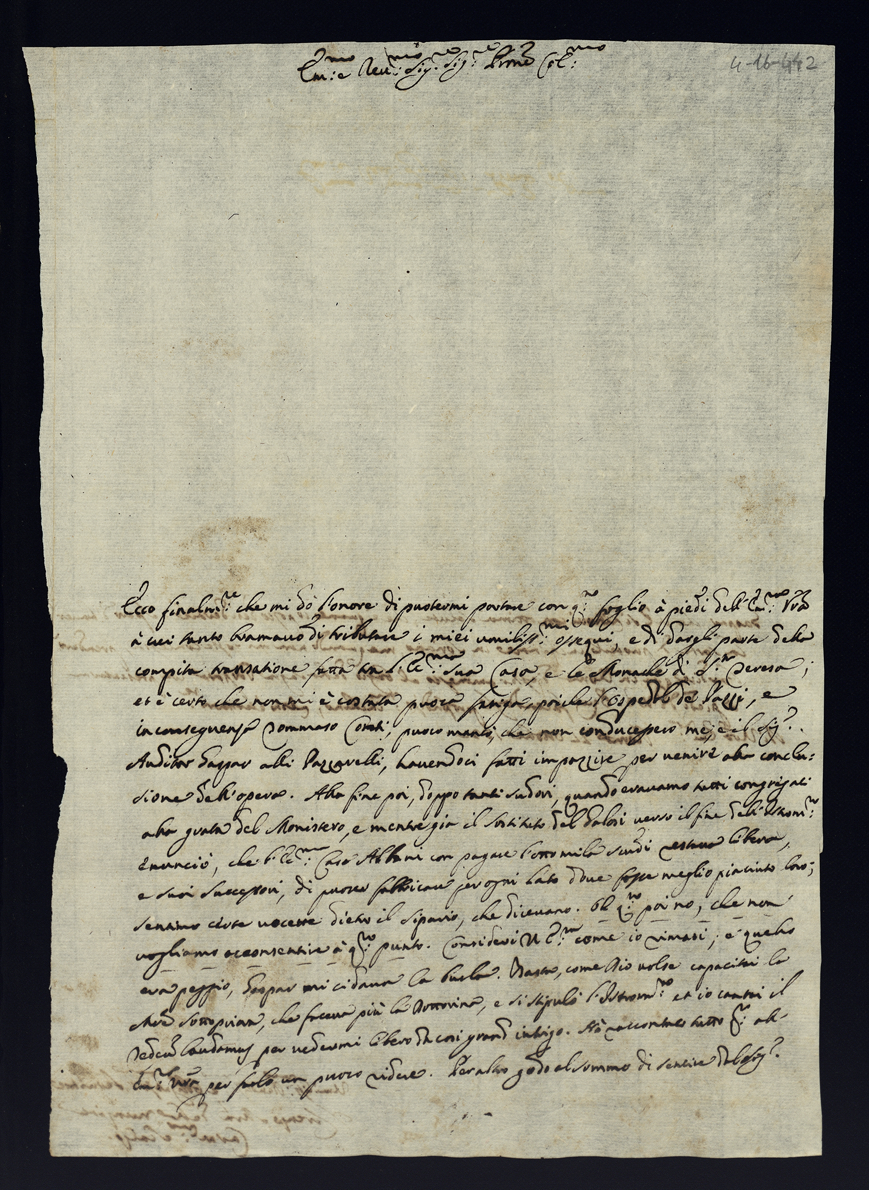 Em:mo e Reu:mo Sig:re Sig:re Prone Col:mo
4-16-442
Ecco finalm:te che mi dò l'onore di puotermi portare con q:to foglio à piedi dell'Em:mo Vra
à cui tanto bramauo di tributare i miei umiliss:mi ossequi, e di dargli parte della
compita transatione fatta tra l'Ec:ma sua Casa, e le Monache di S:ta Teresa;
et è certo che non mi è costata puoca fatiga, poiche l'Ospedal de Pazzi, e
in conseguenza Tommaso Conti, puoco mancò, che non conducessero me, e il Sig:r
Auditor Gaspar alli Pazzarelli, hauendoci fatti impazzire per venire alla conclu-
sione dell'opera. Alla fine poi, doppo tanti sudori, quando eravamo tutti congregati
alla grata del Monistero, e mentre già il sostituto del verso il fine dell'Istrom:to
enunciò, che l'Ec:ma Casa Albani con pagare l'ottomila scudi restava libera,
e suoi successori, di puoter fabbricare per ogni lato doue fosse meglio piaciuto loro;
sentimo certe vocette dietro il sipario, che diceuano. Oh q:to poi no, che non
vogliamo acconsentire à q:to punto. Consideri V.E:za come io rimasi; e quello
era peggio, Gaspar mi ci daua la burla. Basta, come Dio volse capacitai la
Mre sottopriora, che faceua più la Dottorina, e si stipulò l'Istrom:to et io cantai il
Tedeum laudamus per vedermi libero da così grand'intrigo. Hò raccontato tutto q:to all'
Em:za Vra per farlo un puoco ridere. Peraltro godo al sommo di sentire dal Sig:r